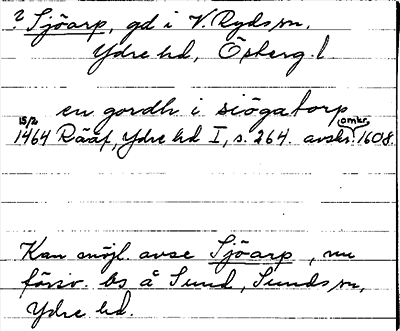 ? Sjöarp, gd i V. Ryds sn,
Ydre hd, Österg. l.
en gordh i siögatorp
15/2 1464 Rääf, Ydre hd I, s. 264. avskr. omkr. 1608.
Kan möjl. avse Sjöarp, nu
försv. bs å Sund, Sunds sn,
Ydre hd.